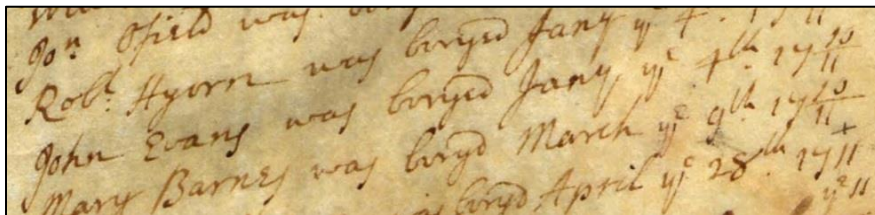 Jon Ofield was
Robt: Hyorn was boryed Jany ye 4. 17 11
John Evans was boryed Jany ye 4th. 17 10/11
Mary Barnes was boryd March ye 9th 17 10/11
boryd April ye 28th 1711
ye 11